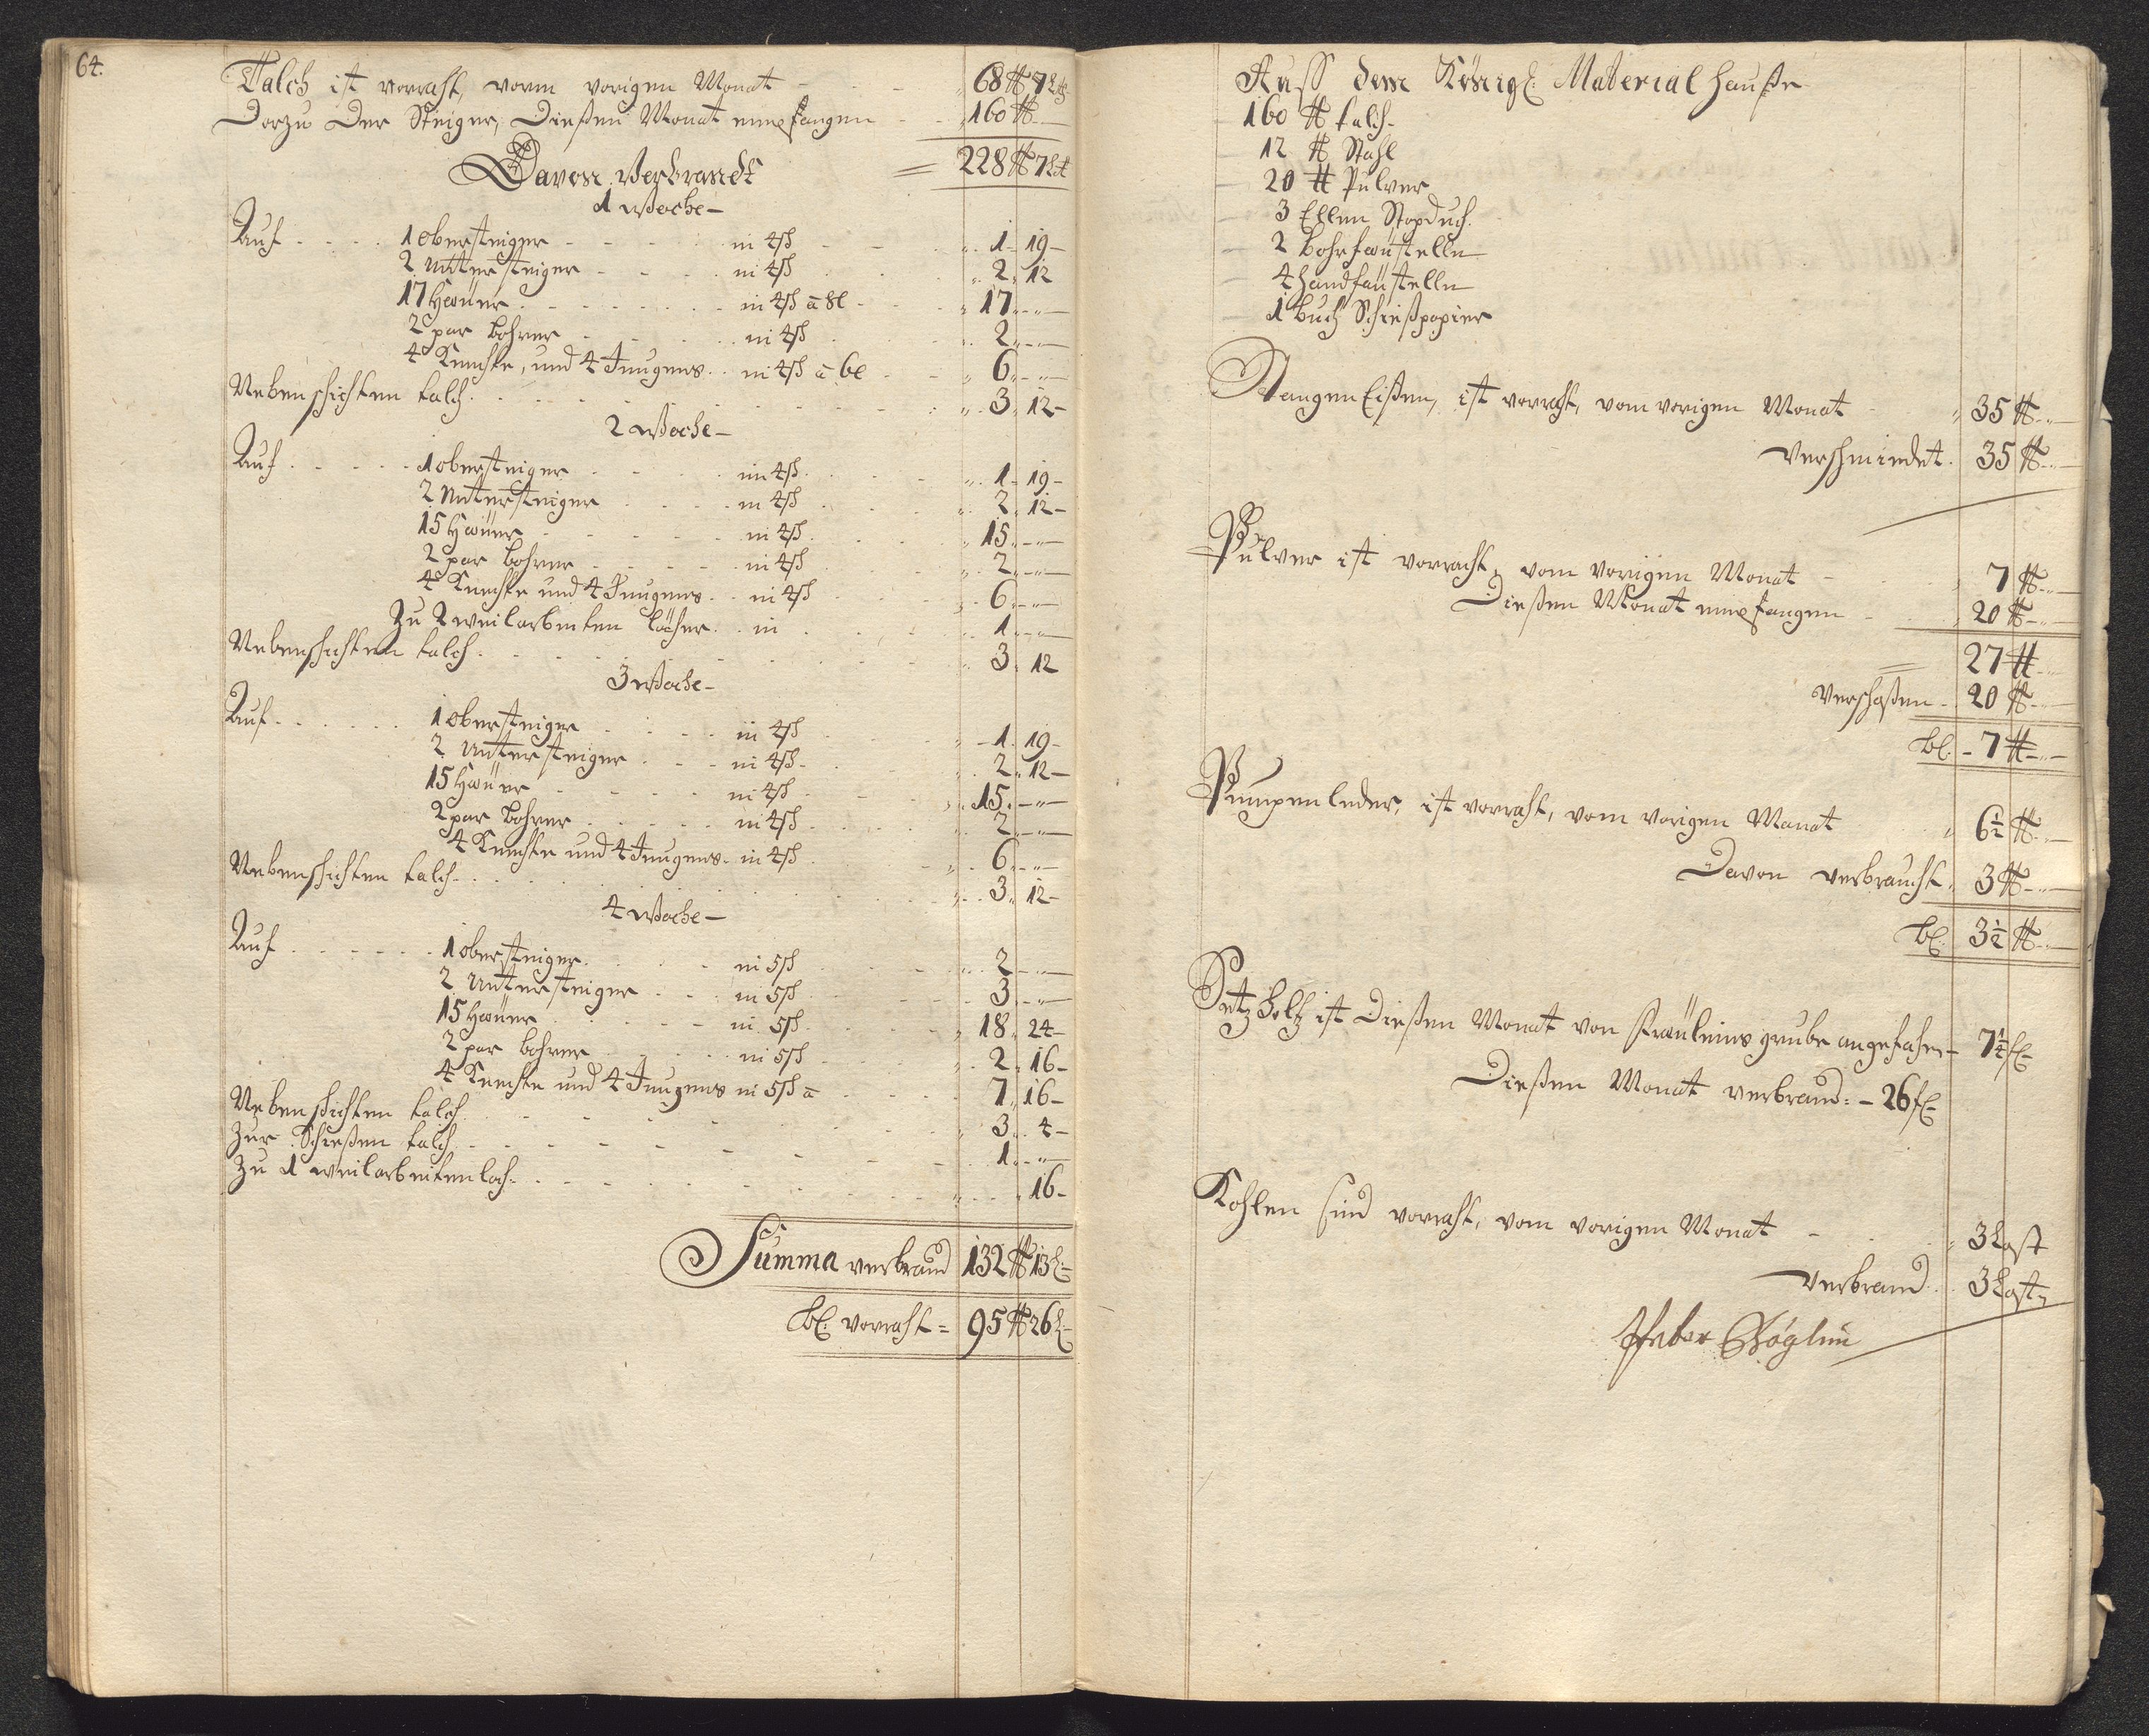 64.
Talch ist vorraht, vorm vorigen Monat - - - 68 ℔ 7 Lth
Dorzu Der Steiger, Dießen Monat empfangen - - 160 ℔
Davon Verbrandt = 228 ℔ 7 Lt
1 Woche -
Auf . . . . 1 Obersteiger - - - in 4 sch - - 1 - 19 -
2 Untersteiger - - - in 4 sch 2 . 12
17 Häuer - - - in 4 sch a 8 l - 17 . - -
2 par Bohrer - - - in 4 sch 2 . - -
4 Knechte, und 4 Jungens . . in 4 sch a 6 l - 6 . - -
Nebenschichten talch . . . 3 . 12 -
2 Woche -
Auf . . . . 1 obersteiger - - - in 4 sch . 1 - 19 -
2 Untersteiger - - - in 4 sch 2 . 12 -
15 Häuer - - - in 4 sch . 15 . - -
2 par Bohrer - - - in 4 sch 2 . - -
4 Knechte und 4 Jungens . . in 4 sch 6 . - -
Zu 2 weilarbeiten löcher . . in . . 1 . - -
Nebenschichten talch . . . 3 . 12
3 Woche -
Auf . . . . 1 obersteiger - - - in 4 sch - 1 . 19 -
2 Untersteiger - - - in 4 sch - 2 . 12 -
15 Häuer - - - in 4 sch 15 . - -
2 par Bohrer - - - in 4 sch 2 . - -
4 Knechte und 4 Jungens . in 4 sch 6 . - -
Nebenschichten talch . . . 3 . 12 -
4 Woche -
Auf . . . . 1 obersteiger . - in 5 sch 2 - -
2 Untersteiger - - - in 5 sch 3 . - -
15 Häuer - - - in 5 sch . 18 . 24 -
2 par Bohrer - - - in 5 sch 2 . 16 -
4 Knechte und 4 Jungens in 5 sch a 7 . 16 -
Nebenschichten talch . . . 3 . 4 -
Zur Schießen talch - - - 1 . - -
Zu 1 weilarbeiten loch . . . 16 -
Summa verbrand 132 ℔ 13 L -
bl. vorraht = 95 ℔ 26 L -
Auss dem Königl: Material Hauße
160 ℔ talch -
12 ℔ Stahl
20 ℔ Pulver
3 Ellen Stopduch .
2 Bohrfäustelln
4 Handfäustelln
1 Buch Schießpapier
Stangen Eißen, ist vorraht, vom vorigen Monat - 35 ℔ -
Verschmiedet . 35 ℔ -
Pulver ist vorraht, vom vorigen Monat - 7 ℔ -
Dießen Monat empfangen - 20 ℔ -
= 27 ℔
Verschoßen - 20 ℔ -
bl: - 7 ℔ -
Pumpenleder, ist vorraht, vom vorigen Monat 6½ ℔ -
Davon verbraucht . 3 ℔ -
bl: 3½ ℔ -
Setz Holtz ist Dießen Monat von Fräuleins grube angefahren - 7¼ fl -
Dießen Monat verbrand : - 26 fl -
Kohlen sind vorraht, vom vorigen Monat - 3 Last
Verbrand . 3 Last